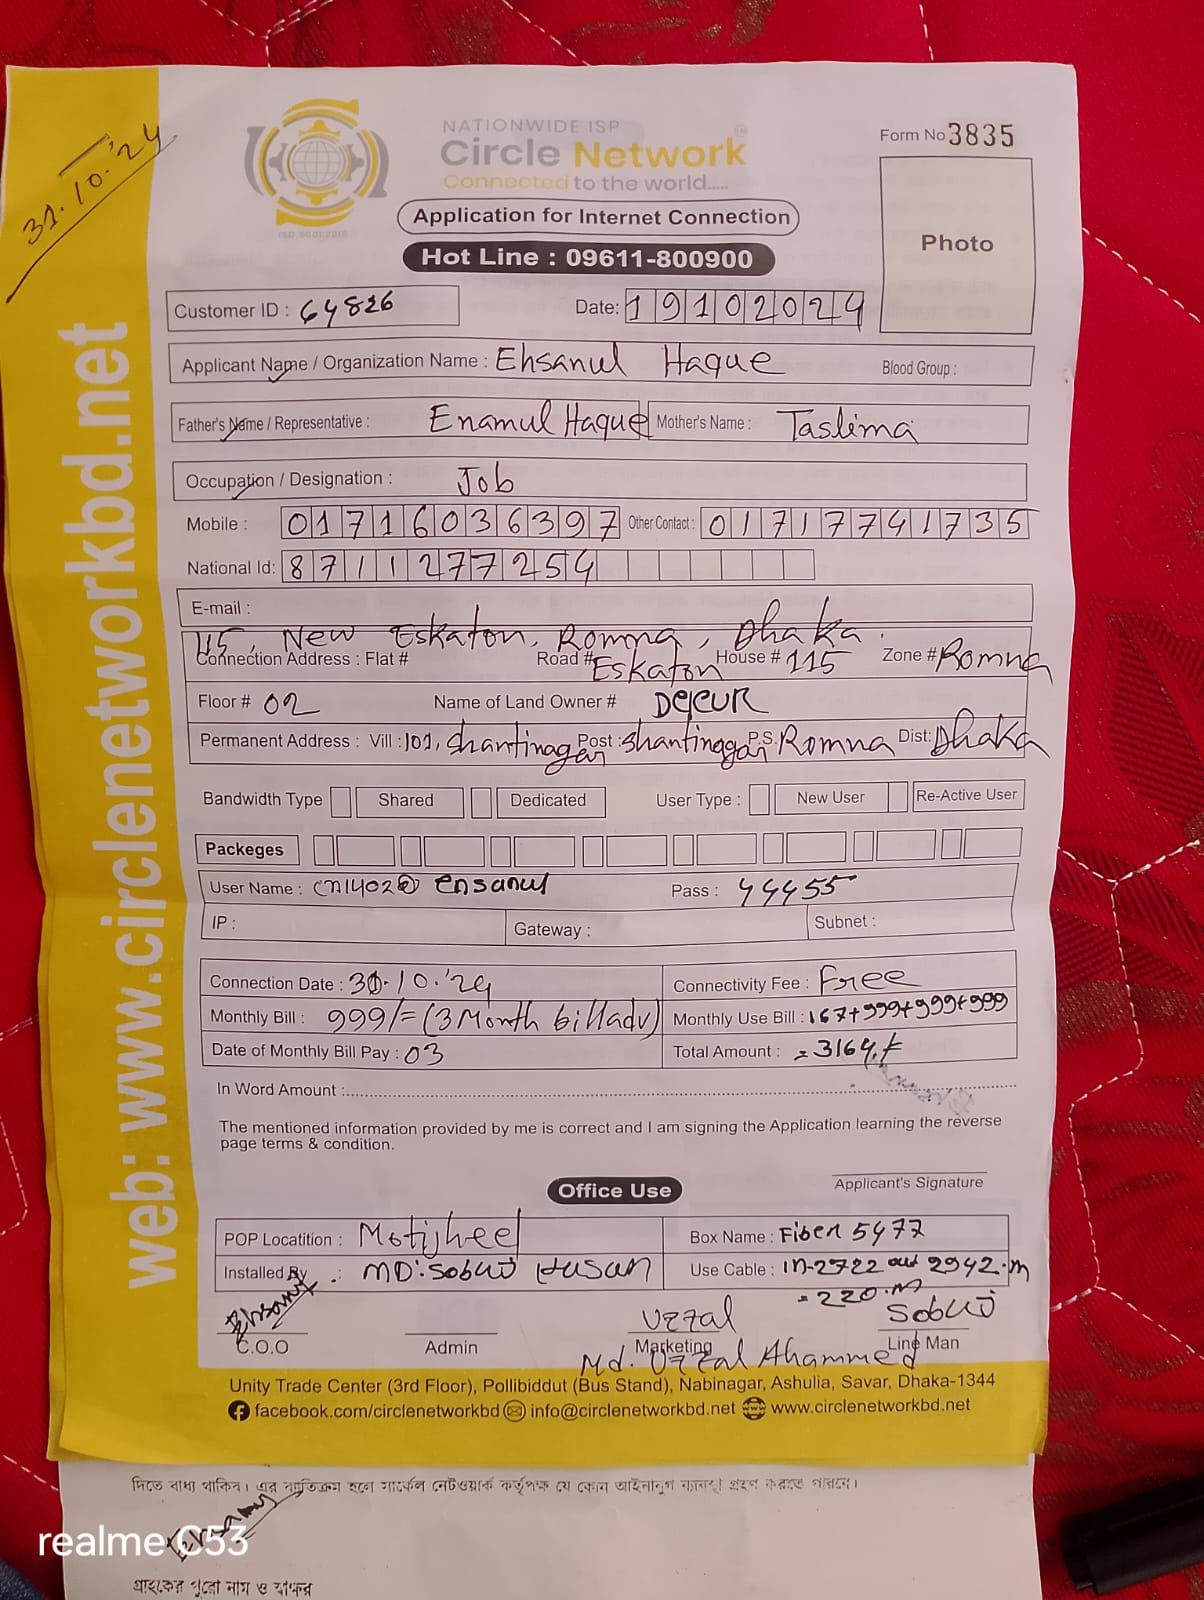 31.10.'24
NATIONWIDE ISP
Circle Network
Connected to the world.....
ISO 9001:2015
Form No 3835
Application for Internet Connection
Hot Line : 09611-800900
Photo
Customer ID : 64826
Date: 19102024
Applicant Name / Organization Name : Ehsanul Haque Blood Group :
Father's Name / Representative : Enamul Haque Mother's Name : Taslima
Occupation / Designation : Job
Mobile : 01716036397 Other Contact : 01717741735
National Id: 8711277254
E-mail :
115, New Eskaton, Romna, Dhaka.
Connection Address : Flat # Road # Eskaton House # 115 Zone # Romna
Floor # 02 Name of Land Owner #
Permanent Address : Vill : 101, Shantinagar Post : Shantinagar P.S. Romna Dist: Dhaka
Bandwidth Type Shared Dedicated User Type : New User Re-Active User
Packeges
User Name : cn1402@ ehsanul Pass : 44455
IP : Gateway : Subnet :
Connection Date : 31.10.'24 Connectivity Fee : Free
Monthly Bill : 999/= (3 Month bill adv) Monthly Use Bill : 167+999+999+999
Date of Monthly Bill Pay : 03 Total Amount : =3164/=
In Word Amount :
The mentioned information provided by me is correct and I am signing the Application learning the reverse
page terms & condition.
Applicant's Signature
Office Use
POP Locatition : Motijheel Box Name : Fiber 5477
Installed By : MD: Sobuj Hasan Use Cable : in-2722 out 2942.m
=220.m
Ehsanul Uzzal Sobuj
C.O.O Admin Marketing Line Man
Md. Uzzal Ahammed
Unity Trade Center (3rd Floor), Pollibiddut (Bus Stand), Nabinagar, Ashulia, Savar, Dhaka-1344
facebook.com/circlenetworkbd info@circlenetworkbd.net www.circlenetworkbd.net
web: www.circlenetworkbd.net
দিতে বাধ্য থাকিব। এর ব্যতিক্রম হলে সার্কেল নেটওয়ার্ক কর্তৃপক্ষ যে কোন আইনানুগ ব্যবস্থা গ্রহণ করতে পারবে।
Ehsanul
realme C53
গ্রাহকের পুরো নাম ও স্বাক্ষর